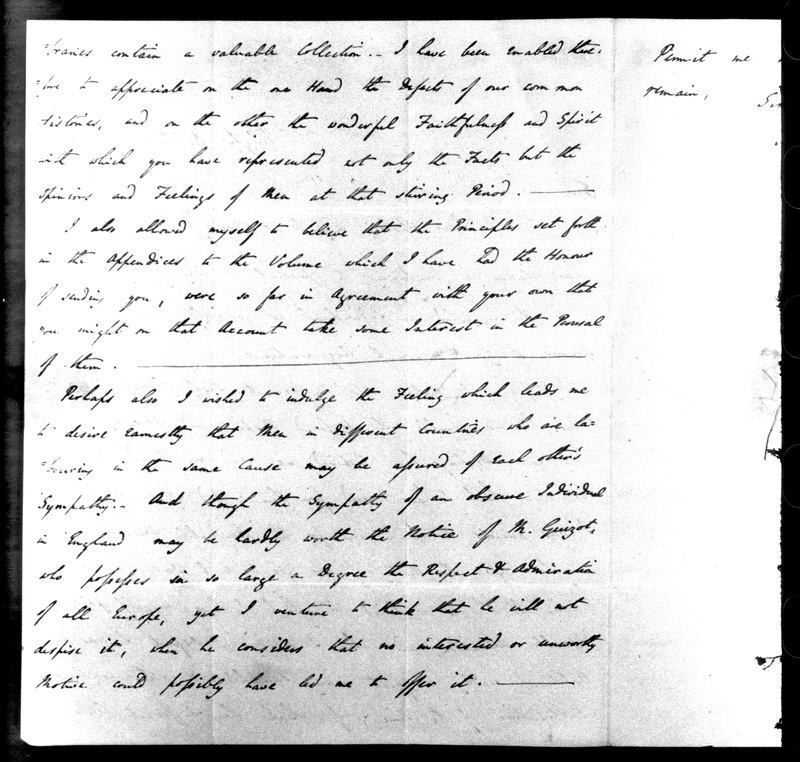 =braries contain a valuable Collection. - I have been enabled there=
=fore to appreciate on the one Hand the Defects of our common
Histories, and on the other the wonderful Faithfulness and Spirit
with which you have represented not only the Facts but the
Opinions and Feelings of Men at that stirring Period. ———
I also allowed myself to believe that the Principles set forth
in the Appendices to the Volume which I have had the Honour
of sending you, were so far in Agreement with your own that
you might on that Account take some Interest in the Perusal
of them. ———
Perhaps also I wished to indulge the Feeling which leads me
to desire earnestly that Men in different Countries who are la=
=bouring in the same Cause may be assured of Each other's
Sympathy. - And though the Sympathy of an obscure Individual
in England may be hardly worth the Notice of M. Guizot,
who possesses in so large a Degree the Respect & Admiration
of all Europe, yet I venture to think that he will not
despise it, when he considers that no interested or unworthy
Motive could possibly have led me to offer it. ———
Permit me
remain,